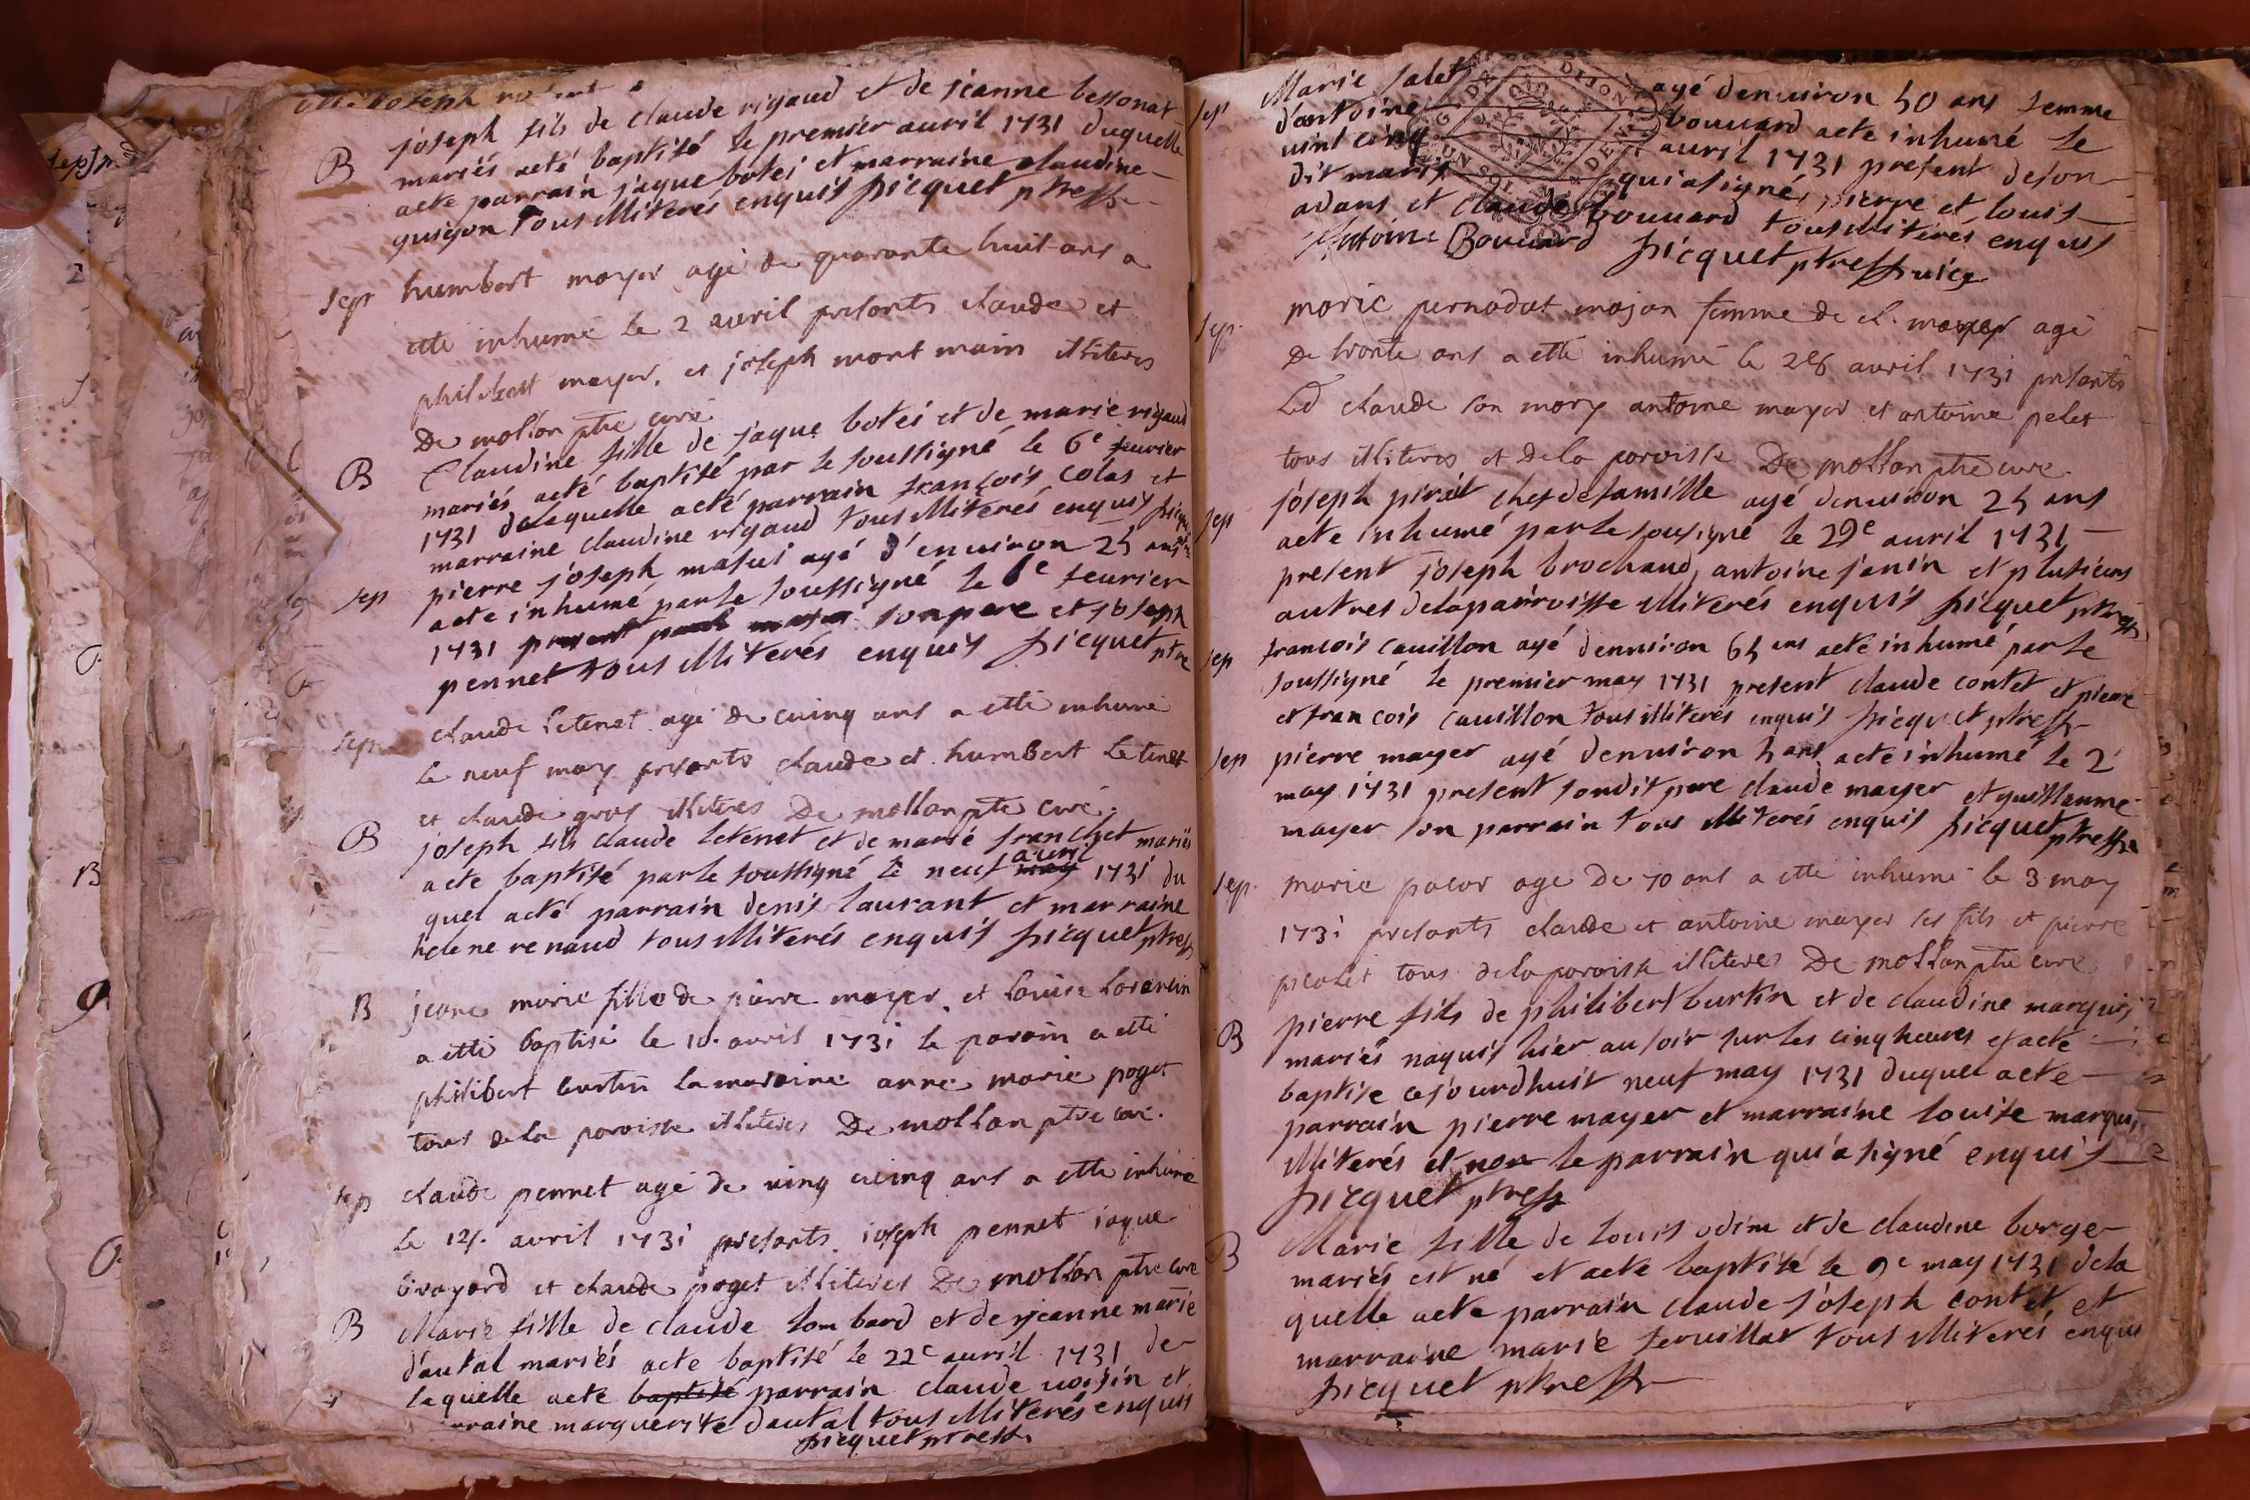 joseph fils de claude rigaud et de jeanne bessonat
B
mariés acté baptisé le premier auril 1731 duquelle
acte parrain jaque botei et marraine claudine
guigon tous illiterés enquis picquet ptre
sep humbert mayer agé de quarante huit ans a
etté inhumé le 2 auril presants claude et
philibert mayer, et joseph mont main illiteres
De mollon ptre curé
B Claudine fille de jaque botei et de marie rigaud
mariés acté baptisé par le soussigné le 6e feurier
1731 delaquelle acté parrain françois colas et
marraine claudine rigaud tous illiterés enquis
sep pierre joseph matui agé d'enuiron 25 ans
acte inhumé par le soussigné le 6e feurier
1731 son pere et joseph
pennet tous illiterés enquis picquet ptre
sep claude letenet agé de cuinq ans a etté inhumé
le neuf may presants claude et humbert Letenet
et claude gros illiteres De mollon ptre curé
B joseph fils claude letenet et de marie franchet mariés
auril
acte baptisé par le soussigné le neuf may 1731 du
quel acté parrain denis laurant et marraine
helene renaud tous illiterés enquis picquet ptre
B jeane marie fille de pierre mayer et Louise
a etté baptisé le 10 auril 1731 le parain a etté
philibert burtin la maraine anne marie poget
tous de la paroisse illiteres De mollon ptre curé
sep claude pennet agé de uing cuinq ans a etté inhumé
le 12 auril 1731 presants joseph pennet jaque
brayard et claude poget illiteres De mollon ptre curé
B Marie fille de claude lombard et de jeanne marie
dautal mariés acte baptisé le 22e auril 1731 de
laquelle acte baptisé parrain claude uoisin et
marguerite dautal tous illiterés enquis
picquet ptre
sep Marie salet agé denuiron 50 ans femme
d'antoine bouuard acte inhumé le
uint cinq auril 1731 present deson
dit maris qui a signé, pierre et louis
adans et claude bouuard tous illiterés enquis
Antoine Bouuard picquet ptre uice
sep marie pernodat majon femme de cl. mayer agé
De trante ans a etté inhumé le 28 auril 1731 presants
Led claude son mary antoine mayer et antoine pelet
tous illiteres et de la paroisse De mollon ptre curé
sep joseph pirat chef de famille agé denuiron 25 ans
acte inhumé par le sousigné le 29e auril 1731
present joseph brochand, antoine janin et plusieurs
autres de la parroisse illiterés enquis picquet ptre
sep francois cauillon agé denuiron 65 ans acte inhumé par le
soussigné le premier may 1731 present claude contet et pierre
et francois cauillon tous illiterés enquis picquet ptre
sep pierre mayer agé denuiron 5 ans acte inhumé le 2
may 1731 present sondit pere claude mayer et guillaume
mayer son parrain tous illiterés enquis picquet ptre
sep marie pacor agé de 70 ans a etté inhumé le 3 may
1731 presants claude et antoine mayer ses fils et pierre
picolet tous de la paroisse illiteres De mollon ptre curé
B pierre fils de philibert burtin et de claudine marquis
mariés naquis hier au soir sur les cinq heures et acte
baptise cejourdhuit neuf may 1731 duquel acte
parrain pierre mayer et marraine louise marquis
illiterés et non le parrain qui a signé enquis
picquet ptre
B Marie fille de louis odim et de claudine borge
mariés est né et acte baptisé le 9e may 1731 dela
quelle acte parrain claude joseph contet, et
marraine marie feruillat tous illiterés enquis
picquet ptre